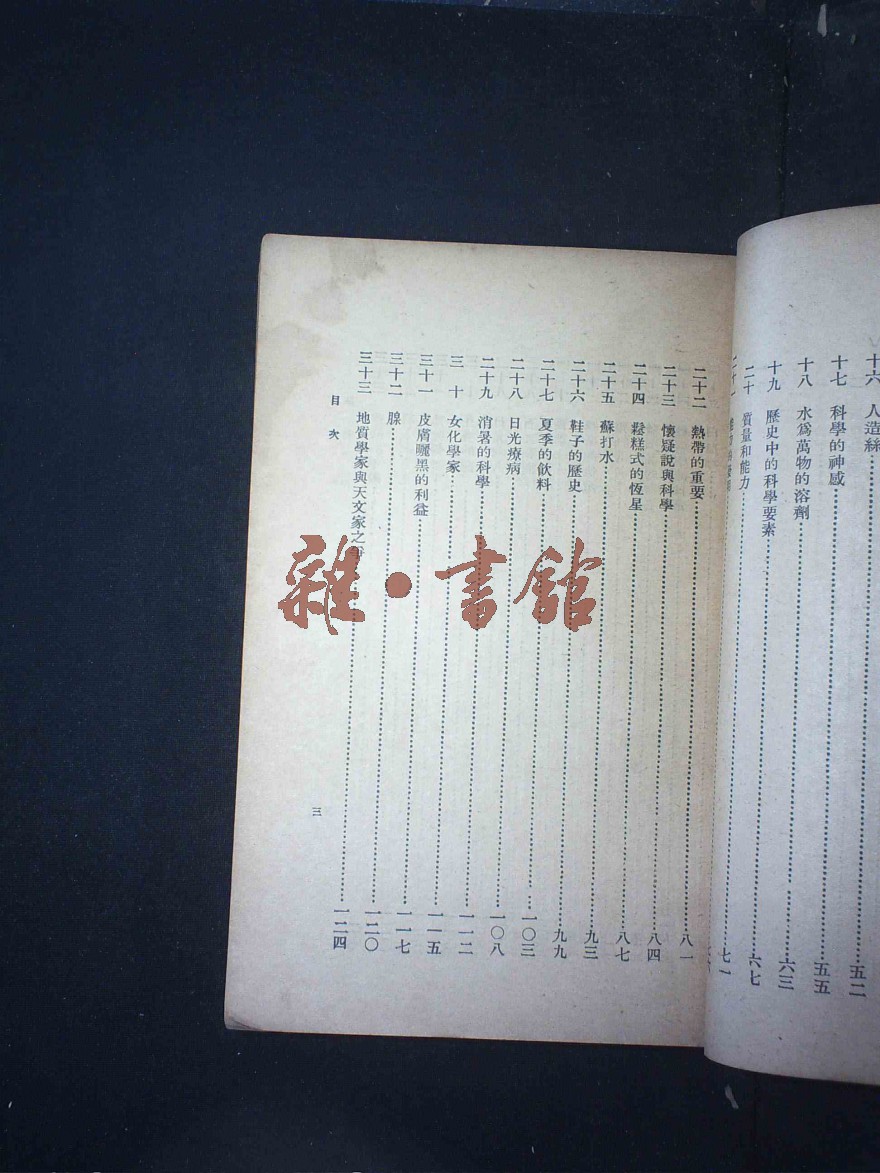 十六 人造絲……五二
十七 科學的神感……五五
十八 水爲萬物的溶劑……六三
十九 歷史中的科學要素……六七
二十 質量和能力……七一
二十一
二十二 熱帶的重要……八一
二十三 懷疑說與科學……八四
二十四 鬆糕式的恆星……八七
二十五 蘇打水……九三
二十六 鞋子的歷史……九九
二十七 夏季的飲料……一〇三
二十八 日光療病……一〇八
二十九 消暑的科學……一一二
三十 女化學家……一一五
三十一 皮膚曬黑的利益……一一七
三十二 腺……一二〇
三十三 地質學家與天文家之……一二四
目次
三
雜·書館